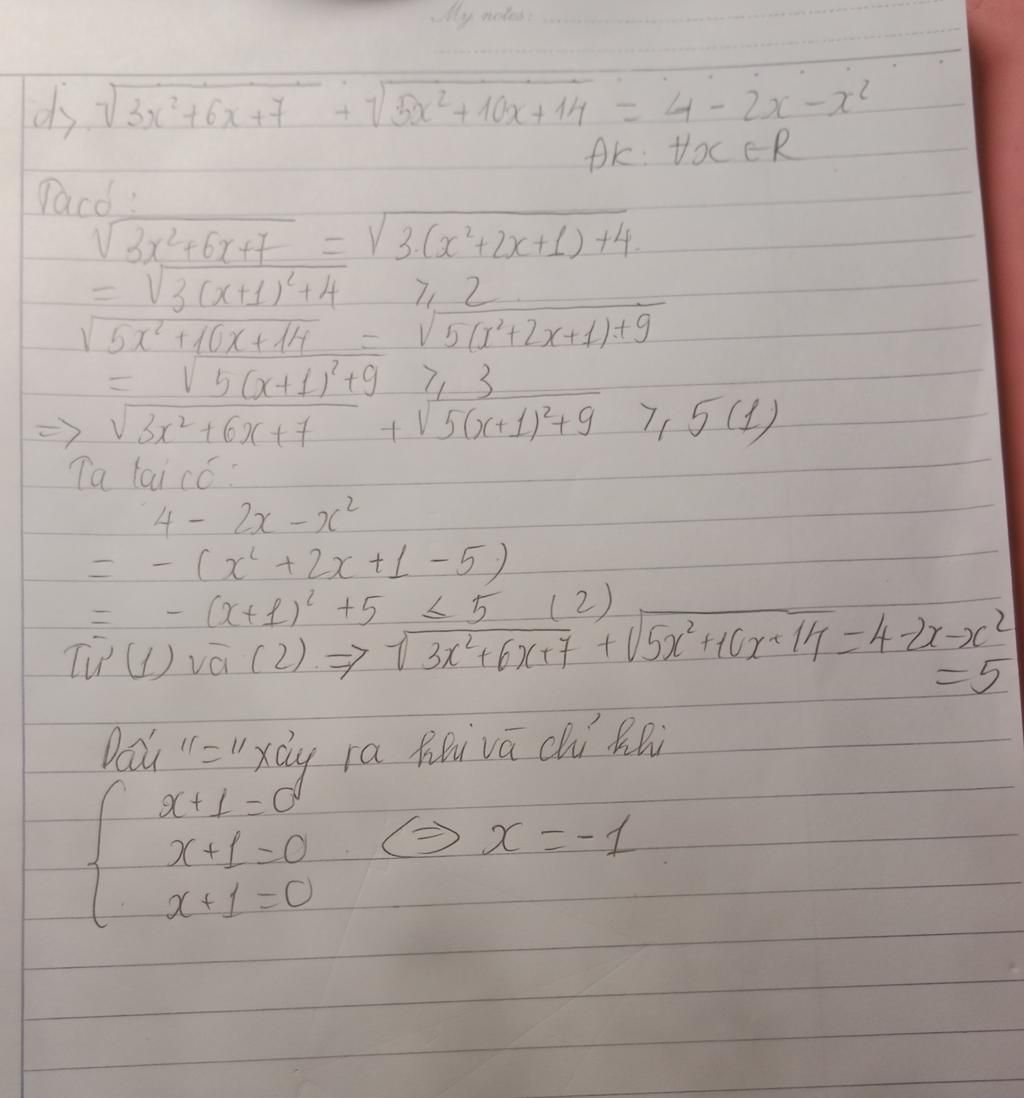 My notes:
d> √(3x²+6x+7) + √(5x²+10x+14) = 4 - 2x - x²
ĐK: ∀x ∈ R
Ta có:
√(3x²+6x+7) = √(3.(x²+2x+1)+4)
= √(3(x+1)²+4) ⩾ 2
√(5x²+10x+14) = √(5(x²+2x+1)+9)
= √(5(x+1)²+9) ⩾ 3
=> √(3x²+6x+7) + √(5(x+1)²+9) ⩾ 5 (1)
Ta lại có:
4 - 2x - x²
= - (x² + 2x + 1 - 5)
= - (x+1)² + 5 ⩽ 5 (2)
Từ (1) và (2) => √(3x²+6x+7) + √(5x²+10x+14) = 4-2x-x²
= 5
Dấu "=" xảy ra khi và chỉ khi
{ x+1=0
x+1=0 <=> x = -1
x+1=0